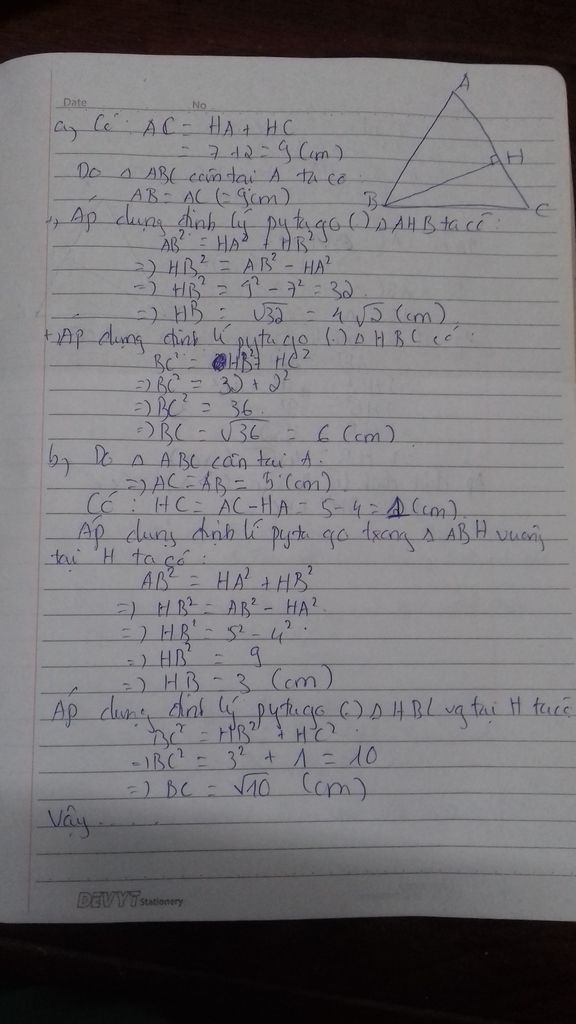 Date No
A
H
B
C
a, Có: AC = HA + HC
= 7 + 2 = 9 (cm)
Do Δ ABC cân tại A ta có
AB = AC (= 9cm)
+, Áp dụng định lý pytago (.) Δ AHB ta có:
AB² = HA² + HB²
=) HB² = AB² - HA²
=) HB² = 9² - 7² = 32
=) HB = √32 = 4√2 (cm)
+, Áp dụng định lí pytago (.) Δ HBC có:
BC² = HB² + HC²
=) BC² = 32 + 2²
=) BC² = 36
=) BC = √36 = 6 (cm)
b, Do Δ ABC cân tại A.
=) AC = AB = 5 (cm)
Có: HC = AC - HA = 5 - 4 = 1 (cm)
Áp dụng định lí pytago trong Δ ABH vuông
tại H ta có:
AB² = HA² + HB²
=) HB² = AB² - HA²
=) HB² = 5² - 4²
=) HB² = 9
=) HB = 3 (cm)
Áp dụng định lý pytago (.) Δ HBC vg tại H ta có
BC² = HB² + HC²
=) BC² = 3² + 1 = 10
=) BC = √10 (cm)
Vậy.......
DEVYT Stationery